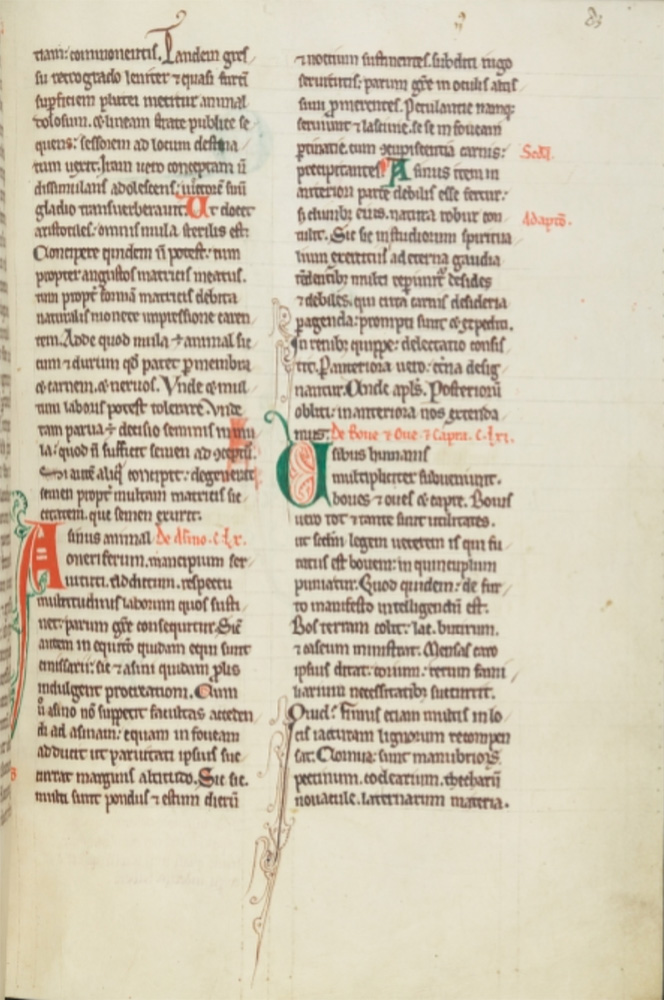 tiam: componentis. Tandem gres
su retrogrado leniter ⁊ quasi furtī
supficiem plutei metitur animal
dolosum. ⁊ lineam strate publice se
quens: sessorem ad locum destina
tum vexit. Iram vero conceptam ñ
dissimulans adolescens: victorē suū
gladio transverberavit. Ut docet
aristotiles: omnis mula sterilis est.
Concipere quidem ñ potest: tum
propter angustos matricis meatus.
tum proptˀ formā matricis debita
naturalis monete impressione caren
tem. Adde quod mula ÷ animal sic
cum ⁊ durum qđ patet p membra
⁊ carnem. ⁊ nervos. Vnde ⁊ mul
tum laboris potest tolerare. Vnde
tam parva ÷ decisio seminis in mu
la: quod ñ sufficit semen ad ɔceptū.
Si autē aliq̄ concipit: degenerat
semen proptˀ multam matricis sic
citatem. que semen exurit.
Asinus animal De Asino. c. lx.
oneriferum. mancipium ser
vituti. addictum. respectu
multitudinis laborum quos susti
net: parum gr̄e consequitur. Sic̄
autem in equicio quidam equi sunt
emissarii: sic ⁊ asini quidam plus
indulgent procreationi. Cum
ñ asino nō suppetit facultas acceden
di ad asinam: equam in foveam
adducit ut parvitati ipsius suc
currat marginis altitudo. Sic sic.
multi sunt pondus ⁊ estum dierū
⁊ noctium sustinentes. subditi iugo
servitutis: parum gr̄e in oculis altis
simi promerentes. Petulantie namq;
serviunt ⁊ lascivie. se se in foveam
ptinatie. cum ɔcupiscentia carnis:
precipitantes. Asinus item in
anteriori parte debilis esse fertur:
s; clunibȝ eius. natura robur con
tulit. Sic sic in studiorum spiritua
lium exercitiis ad eterna gaudia
tēdentibȝ multi repiunt̄ desides
⁊ debiles. qui circa carnis desideria
pagenda: prompti sunt ⁊ expediti.
In renibȝ quippe: delectatio consis
tit. P anteriora vero: et̄na desig
nantur. Vnde apls. Posteriorū
obliti: in anteriora nos extenda
mus. De Bove ⁊ Ove ⁊ Capra. c. lxi.
Vsibus humanis
multipliciter subveniunt.
boves ⁊ oves ⁊ capre. Bovis
vero tot ⁊ tante sunt utilitates.
ut scđm legem veterem is qui fu
ratus est bovem: in quincuplum
puniatur. Quod quidem: de fur
to manifesto intelligendū est.
Bos terram colit: lac. butirum.
⁊ caseum ministrat. Mensas caro
ipsius ditat. corium: rerum fami
liarium necessitatibȝ succurrit.
Quid? Fimus eciam multis in lo
cis iacturam lignorum recompen
sat. Cornua: sunt manubriorȝ
pectinum. coclearium. thecharū
novacule. laternarum materia.
Adaptō.